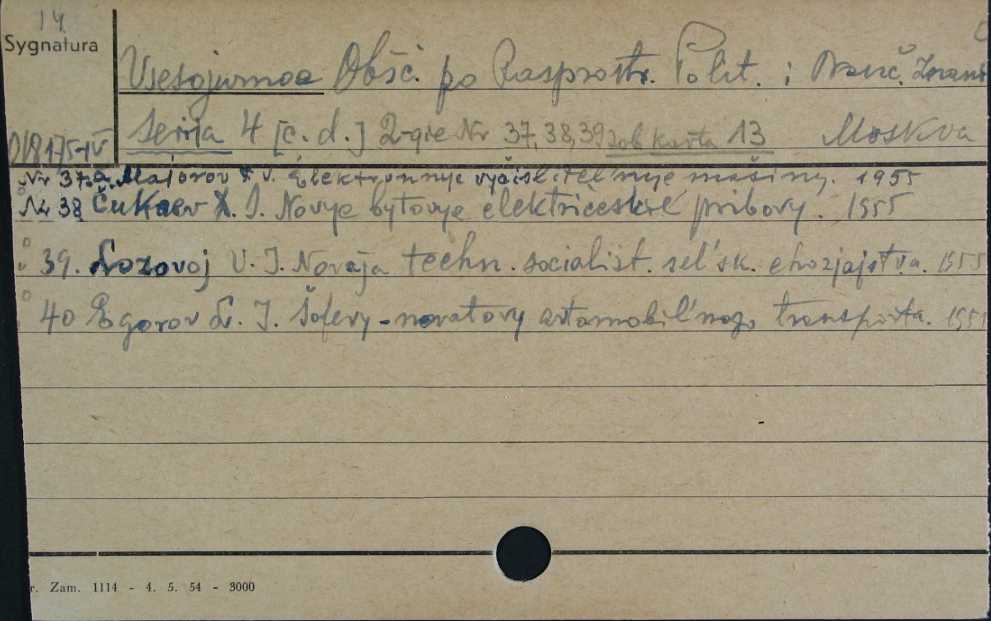 14
Sygnatura
Vsesojuznoe Obšč. po Rasprostr. Polit. i Nauč. Znanij
Serija 4 [c. d.] 2-gie Nr 37, 38, 39 zob karta 13 Moskva
D18175-IV
Nr 37. a. Majorov F. V. Elektronnye vyčislitel'nye mašiny. 1955
Nr 38 Čukaev D. I. Novye bytovye električeskie pribory. 1955
39. Lozovoj V. I. Novaja techn. socialist. sel'sk. chozjajstva. 1955
40 Egorov L. I. Šofery-novatory avtomobil'nogo transporta. 195
r. Zam. 1114 - 4. 5. 54 - 3000